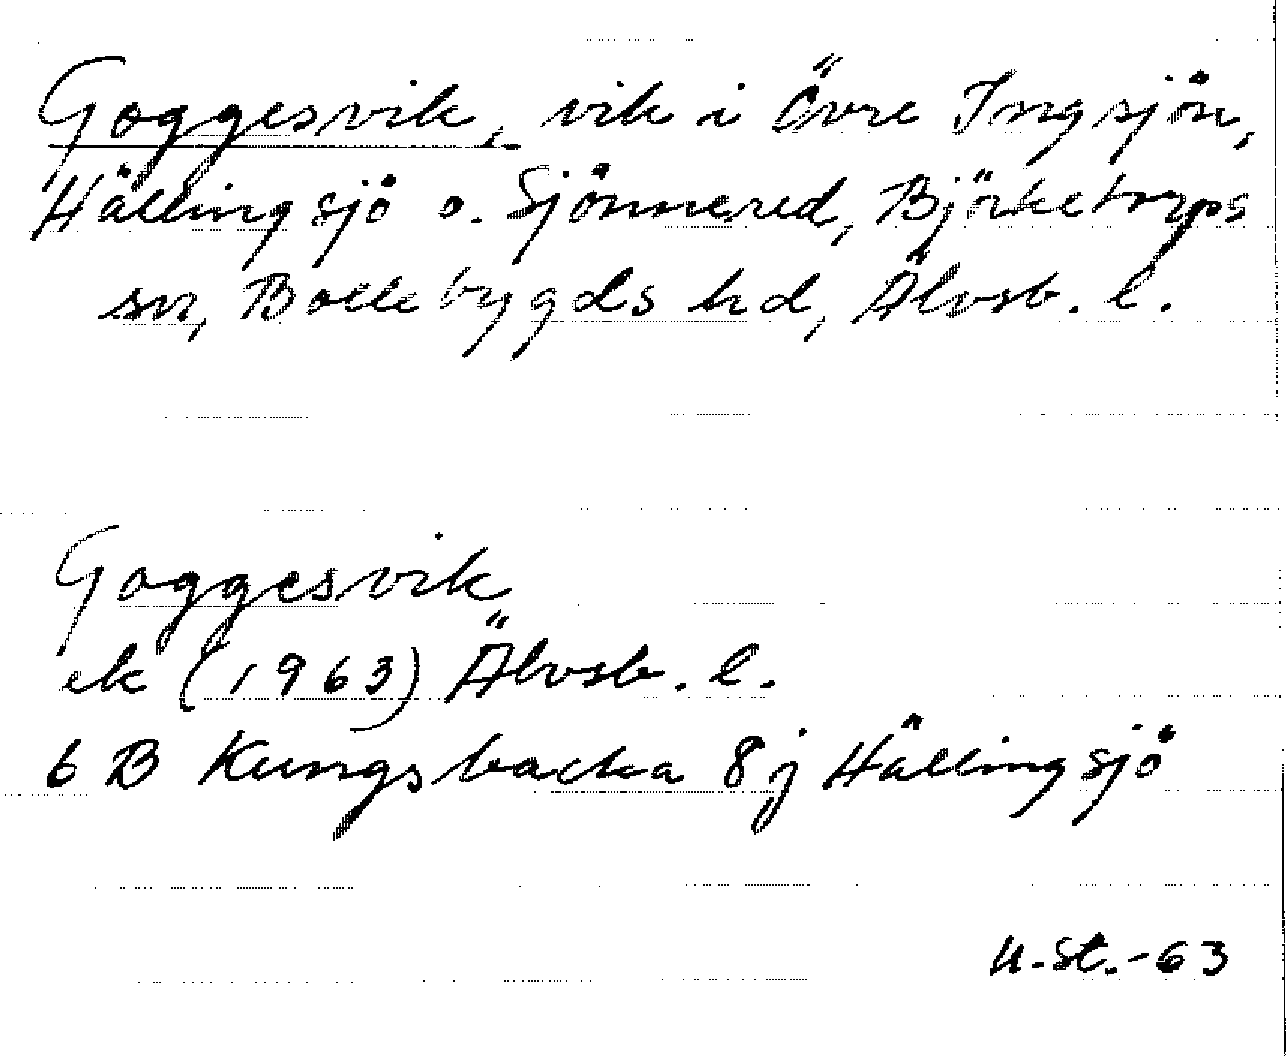 Goggesvik, vik i Övre Ingsjön,
Hällingsjö o. Sjönnered, Björketorps
sn, Bollebygds hd, Älvsb. l.
Goggesvik
ek (1963) Älvsb. l.
6 B Kungsbacka 8 j Hällingsjö
U.St.-63